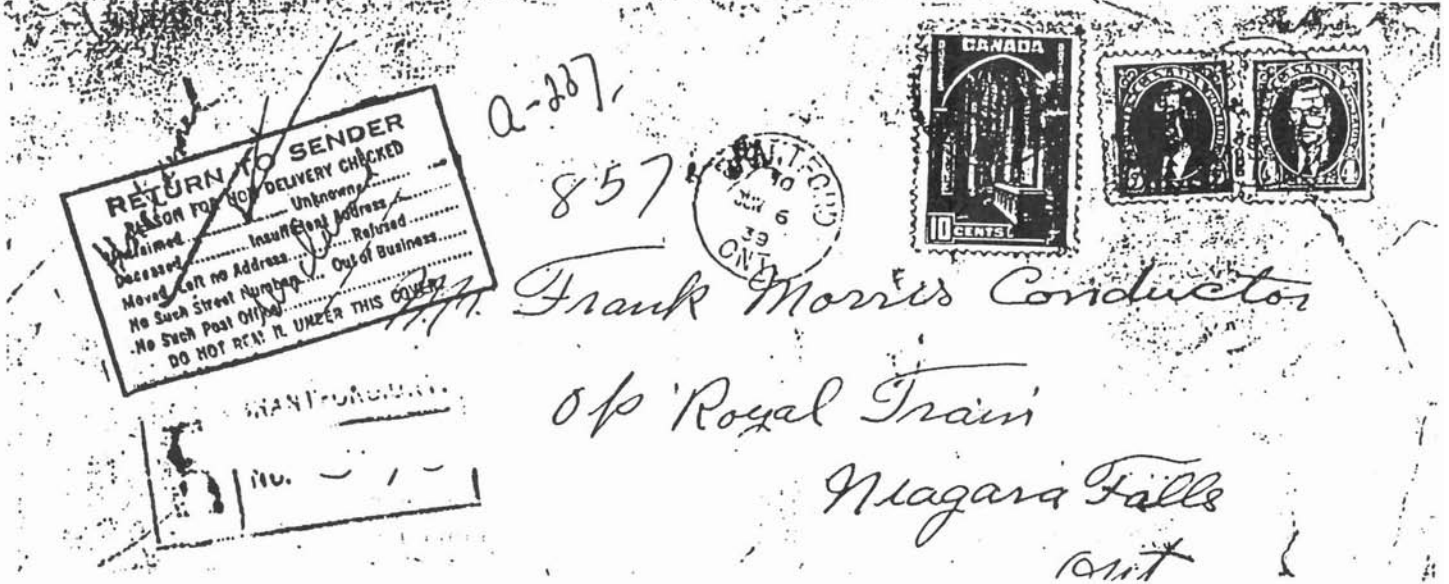 RETURN TO SENDER
REASON FOR NON DELIVERY CHECKED
Unclaimed .......... Unknown ..........
Deceased .......... Insufficient Address ..........
Moved, Left no Address .......... Refused ..........
No Such Street Number .......... Out of Business ..........
No Such Post Office ..........
DO NOT REMAIL UNDER THIS COVER
a-237,
857
BRANTFORD
10
JUN 6
39
ONT
CANADA
10 CENTS
CANADA
CANADA
4
Mr. Frank Morris Conductor
o/p Royal Train
Niagara Falls
Ont
R
NO.